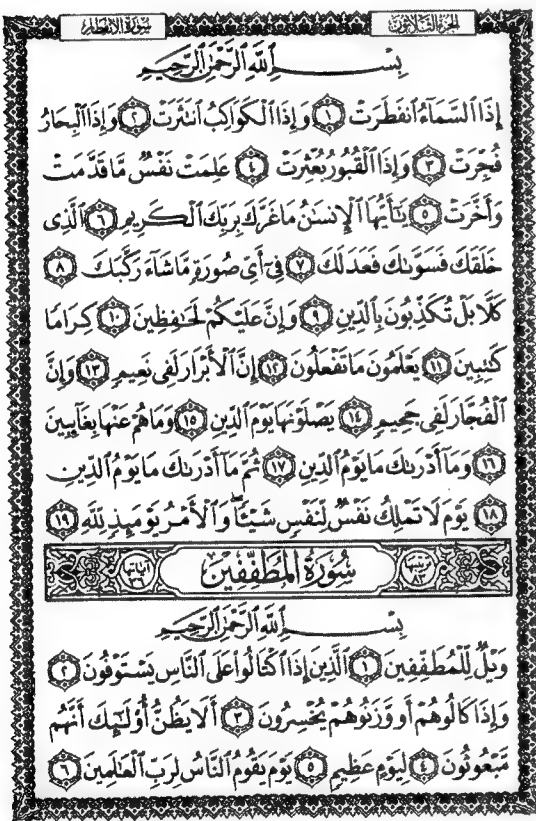 الجزء الثلاثون سورة الانفطار
بِسْمِ ٱللَّهِ ٱلرَّحْمَٰنِ ٱلرَّحِيمِ
إِذَا ٱلسَّمَآءُ ٱنفَطَرَتْ ١ وَإِذَا ٱلْكَوَاكِبُ ٱنتَثَرَتْ ٢ وَإِذَا ٱلْبِحَارُ
فُجِّرَتْ ٣ وَإِذَا ٱلْقُبُورُ بُعْثِرَتْ ٤ عَلِمَتْ نَفْسٌ مَّا قَدَّمَتْ
وَأَخَّرَتْ ٥ يَٰٓأَيُّهَا ٱلْإِنسَٰنُ مَا غَرَّكَ بِرَبِّكَ ٱلْكَرِيمِ ٦ ٱلَّذِى
خَلَقَكَ فَسَوَّىٰكَ فَعَدَلَكَ ٧ فِىٓ أَىِّ صُورَةٍ مَّا شَآءَ رَكَّبَكَ ٨
كَلَّا بَلْ تُكَذِّبُونَ بِٱلدِّينِ ٩ وَإِنَّ عَلَيْكُمْ لَحَٰفِظِينَ ١٠ كِرَامًا
كَٰتِبِينَ ١١ يَعْلَمُونَ مَا تَفْعَلُونَ ١٢ إِنَّ ٱلْأَبْرَارَ لَفِى نَعِيمٍ ١٣ وَإِنَّ
ٱلْفُجَّارَ لَفِى جَحِيمٍ ١٤ يَصْلَوْنَهَا يَوْمَ ٱلدِّينِ ١٥ وَمَا هُمْ عَنْهَا بِغَآئِبِينَ
١٦ وَمَآ أَدْرَىٰكَ مَا يَوْمُ ٱلدِّينِ ١٧ ثُمَّ مَآ أَدْرَىٰكَ مَا يَوْمُ ٱلدِّينِ
١٨ يَوْمَ لَا تَمْلِكُ نَفْسٌ لِّنَفْسٍ شَيْـًٔا ۖ وَٱلْأَمْرُ يَوْمَئِذٍ لِّلَّهِ ١٩
ترتيبها ٨٣ سُورَةُ المُطَفِّفِين آياتها ٣٦
بِسْمِ ٱللَّهِ ٱلرَّحْمَٰنِ ٱلرَّحِيمِ
وَيْلٌ لِّلْمُطَفِّفِينَ ١ ٱلَّذِينَ إِذَا ٱكْتَالُوا۟ عَلَى ٱلنَّاسِ يَسْتَوْفُونَ ٢
وَإِذَا كَالُوهُمْ أَو وَّزَنُوهُمْ يُخْسِرُونَ ٣ أَلَا يَظُنُّ أُو۟لَٰٓئِكَ أَنَّهُم
مَّبْعُوثُونَ ٤ لِيَوْمٍ عَظِيمٍ ٥ يَوْمَ يَقُومُ ٱلنَّاسُ لِرَبِّ ٱلْعَٰلَمِينَ ٦